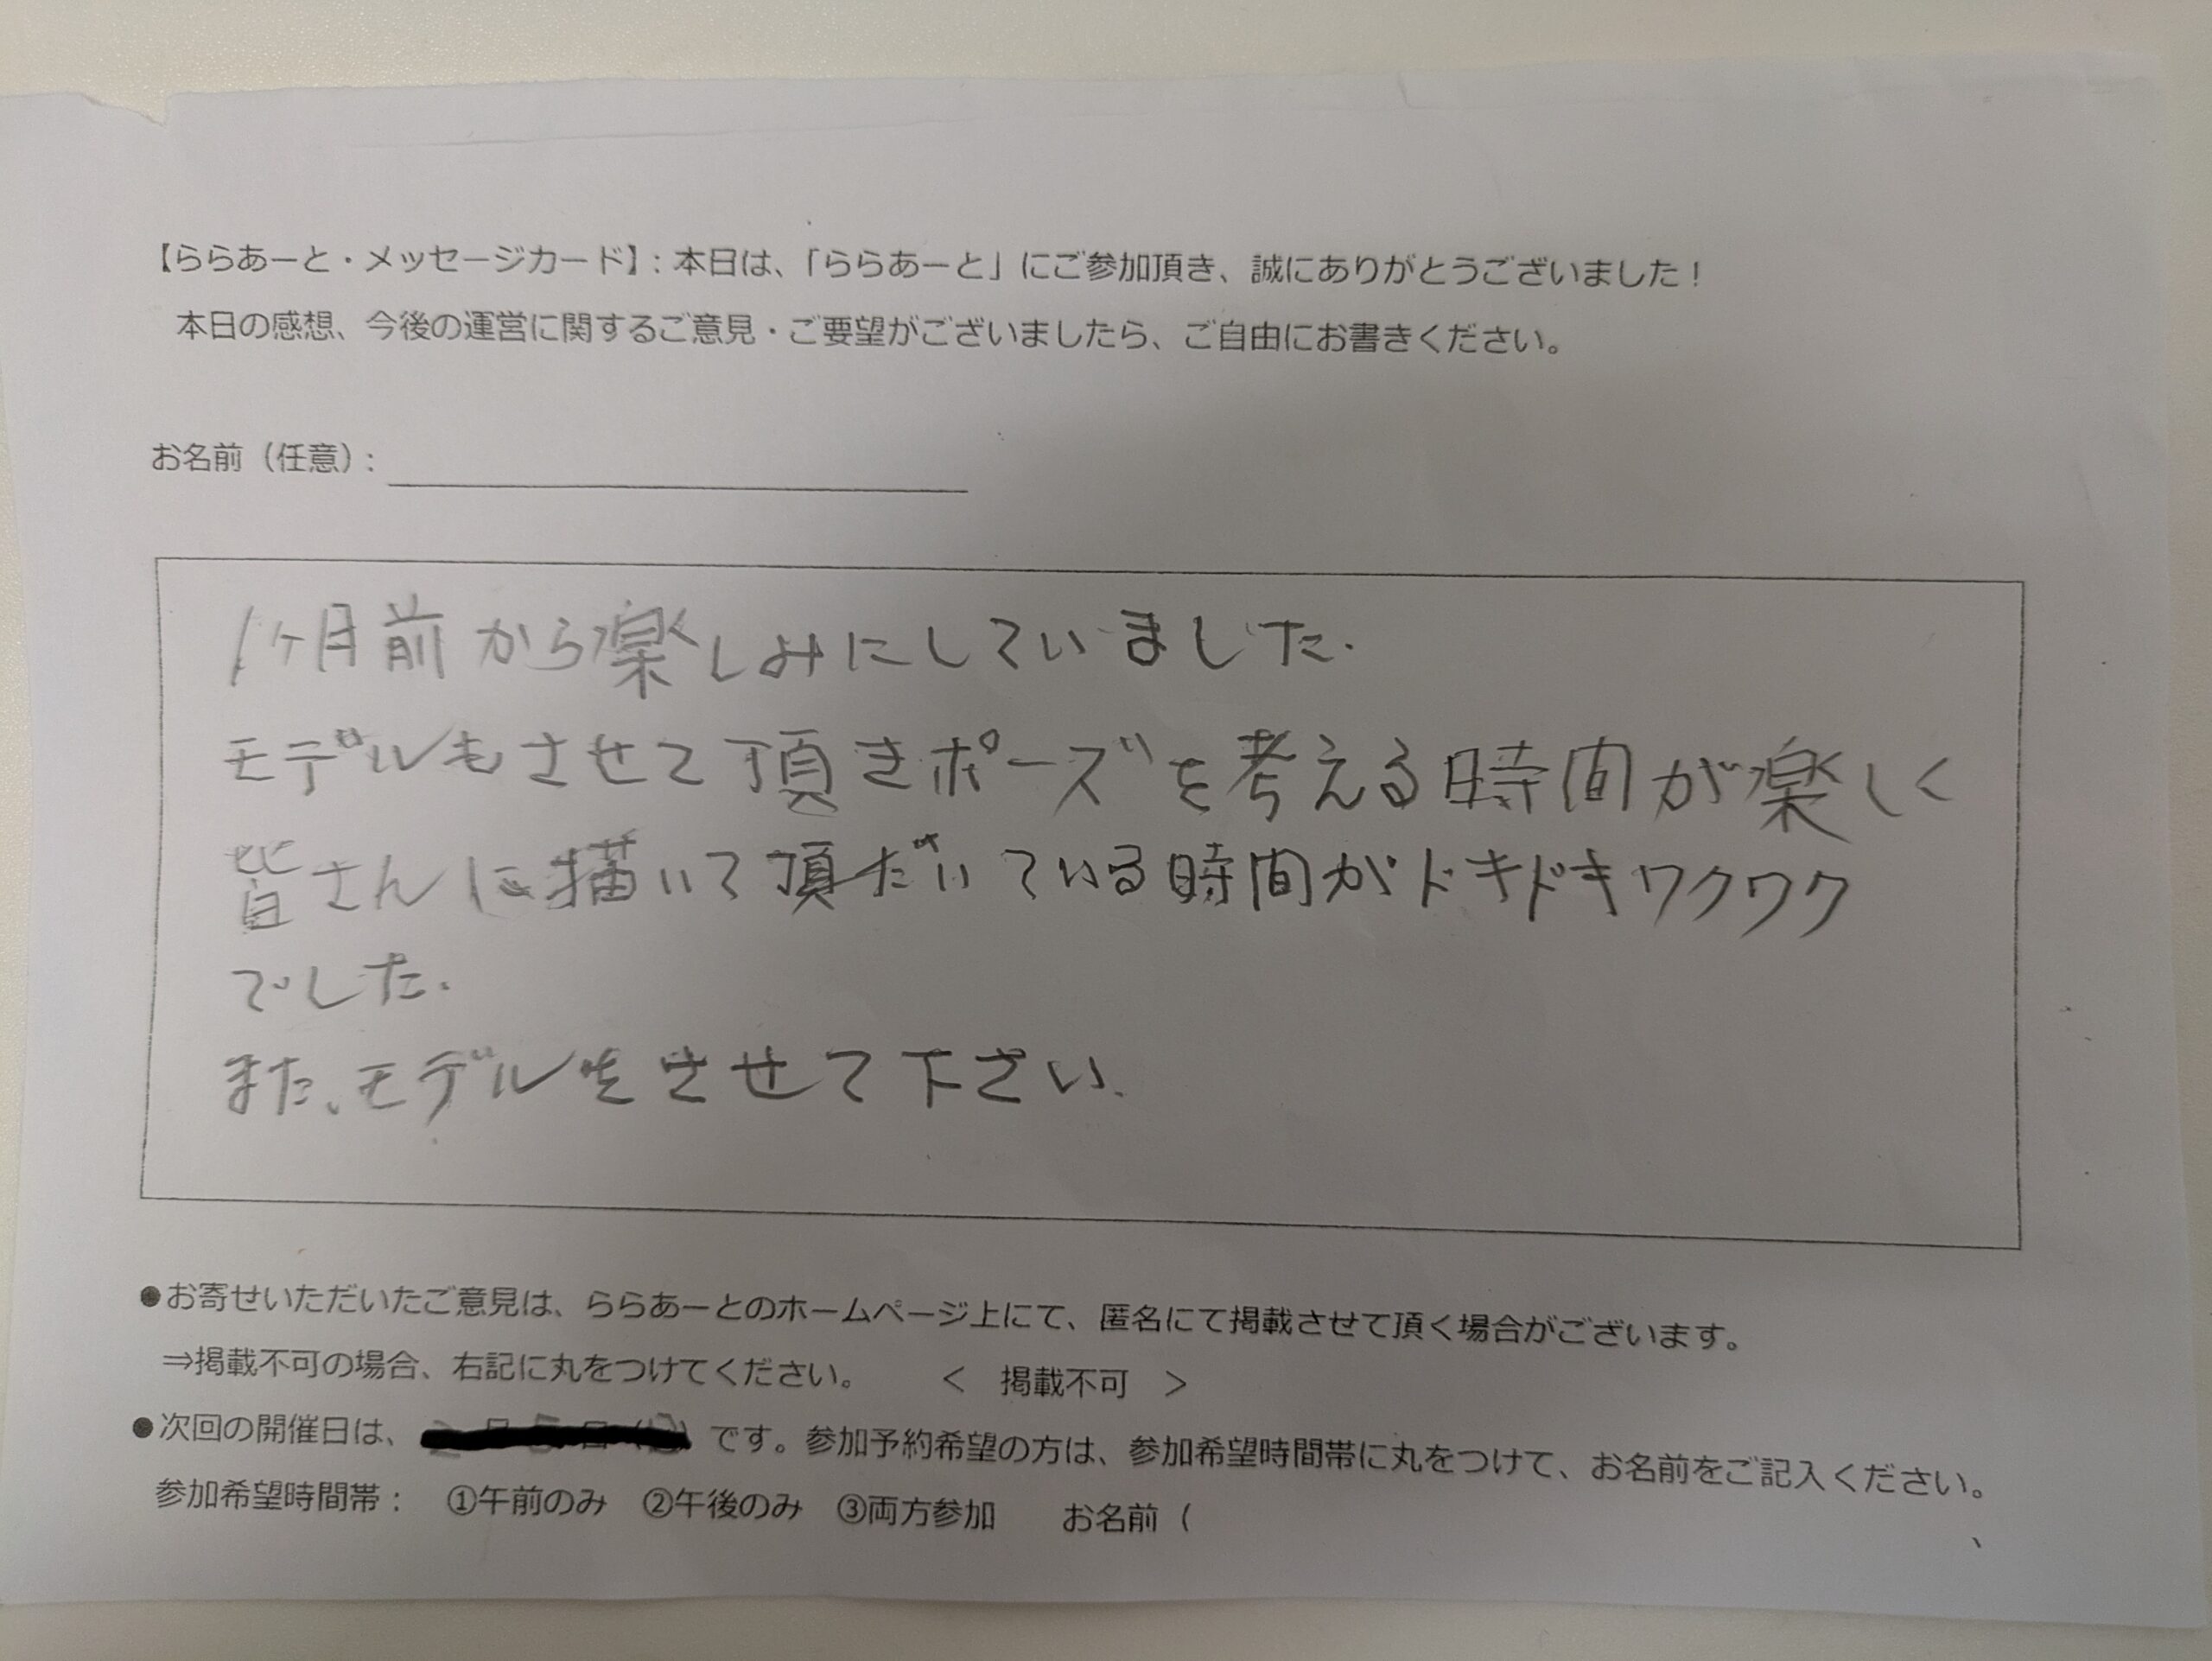 【ららあーと・メッセージカード】：本日は、「ららあーと」にご参加頂き、誠にありがとうございました！
本日の感想、今後の運営に関するご意見・ご要望がございましたら、ご自由にお書きください。
お名前（任意）：
1ヶ月前から楽しみにしていました.
モデルもさせて頂きポーズを考える時間が楽しく
皆さんに描いて頂だいている時間がドキドキワクワク
でした.
また、モデルをさせて下さい.
●お寄せいただいたご意見は、ららあーとのホームページ上にて、匿名にて掲載させて頂く場合がございます。
⇒掲載不可の場合、右記に丸をつけてください。 ＜ 掲載不可 ＞
●次回の開催日は、 です。参加予約希望の方は、参加希望時間帯に丸をつけて、お名前をご記入ください。
参加希望時間帯： ①午前のみ ②午後のみ ③両方参加 お名前（